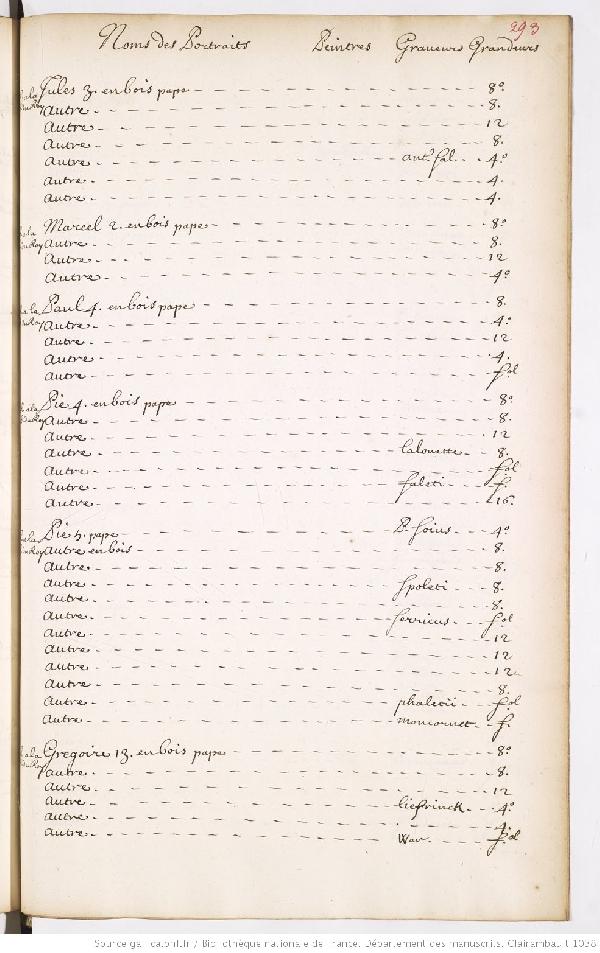 293
Noms des Portraits Peintres Graveurs Grandeurs
Jules 3. en bois pape 8º
Autre 8.
Autre 12
Autre 8.
Autre ant. sal. 4º
Autre 4.
Autre 4.
Marcel 2. en bois pape 8º
Autre 8.
Autre 12
Autre 4º
Paul 4. en bois pape 8.
Autre 4º
Autre 12
Autre 4.
Autre fol
Pie 4. en bois pape 8º
Autre 8.
Autre 12
Autre lalouette 8.
Autre fol
Autre faleti f.
Autre 16.
Pie 5. pape B. soius 4º
Autre en bois 8.
Autre 8.
Autre spoleti 8.
Autre 8.
Autre serricus fol
Autre 12
Autre 12
Autre 12
Autre 8.
Autre phaletii fol
Autre moncornet f.
Gregoire 13. en bois pape 8º
autre 8.
Autre 12
Autre liefrinck 4º
Autre 4.
Autre War. fol
Source gallica.bnf.fr / Bibliothèque nationale de France. Département des manuscrits. Clairambault 1038